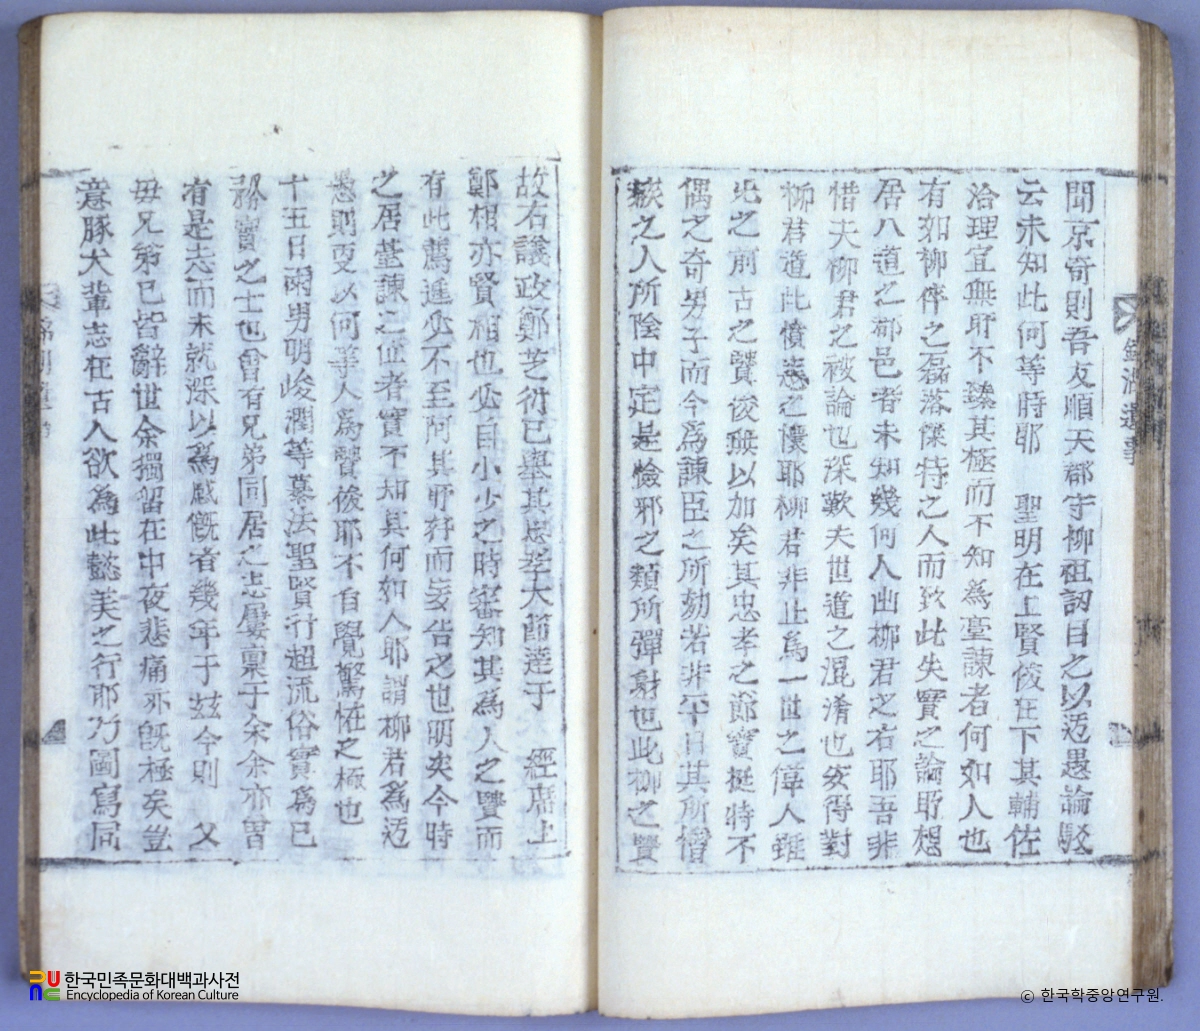 聞京奇則吾友順天郡守柳祖訒目之以迃愚論駁
云未知此何等時耶 聖明在上賢俊在下其輔佐
治理宜無所不臻其極而不知為臺諫者何如人也
有如柳伴之磊落傑特之人而致此失賢之論耶想
居八道之郡邑者未知幾何人出柳君之右耶吾非
惜夫柳君之被論也深歎夫世道之混淆也安得對
柳君道此憤惋之懷耶柳君非止為一世之偉人雖
比之前古之賢俊無以加矣其忠孝之節實挺特不
偶之奇男子而今為諫臣之所劾若非平日其所憎
嫉之人所陰中定是憸邪之類所彈射也此柳之賢
故右議政鄭芝衍已擧其忠孝大節達于 經席上
鄭相亦賢相也必自小少之時審知其為人之賢而
有此薦進必不至阿其所好而妄告之也明矣今時
之居臺諫之位者實不知其何如人耶謂柳君為迃
愚則更以何等人為賢俊耶不自覺驚恠之極也
十五日兩男明峻潤等慕法聖賢行超流俗實為已
務實之士也曾有兄弟同居之志屢稟于余余亦曾
有是志而未就深以為戚慨者幾年于玆今則 父
母兄弟已皆辭世余獨留在中夜悲痛亦旣極矣豈
意豚犬輩志在古人欲為此懿美之行耶乃圖寫同